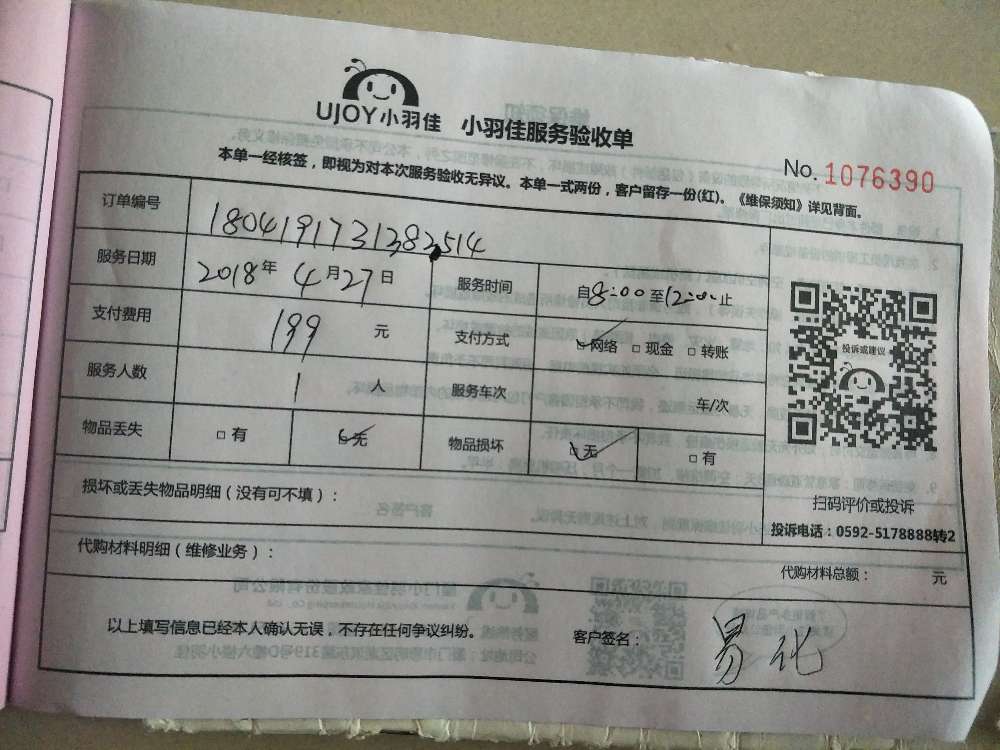 UJOY小羽佳 小羽佳服务验收单
No. 1076390
本单一经核签，即视为对本次服务验收无异议。本单一式两份，客户留存一份(红)。《维保须知》详见背面。
订单编号 1804191731382514
服务日期 2018年 4月27日 服务时间 自8:00至12:00止
支付费用 199 元 支付方式 ☑网络 □现金 □转账
服务人数 1 人 服务车次 车/次
物品丢失 □有 ☑无 物品损坏 ☑无 □有
投诉或建议
扫码评价或投诉
投诉电话：0592-5178888转2
损坏或丢失物品明细（没有可不填）：
代购材料明细（维修业务）：
代购材料总额： 元
以上填写信息已经本人确认无误，不存在任何争议纠纷。
客户签名： 易化